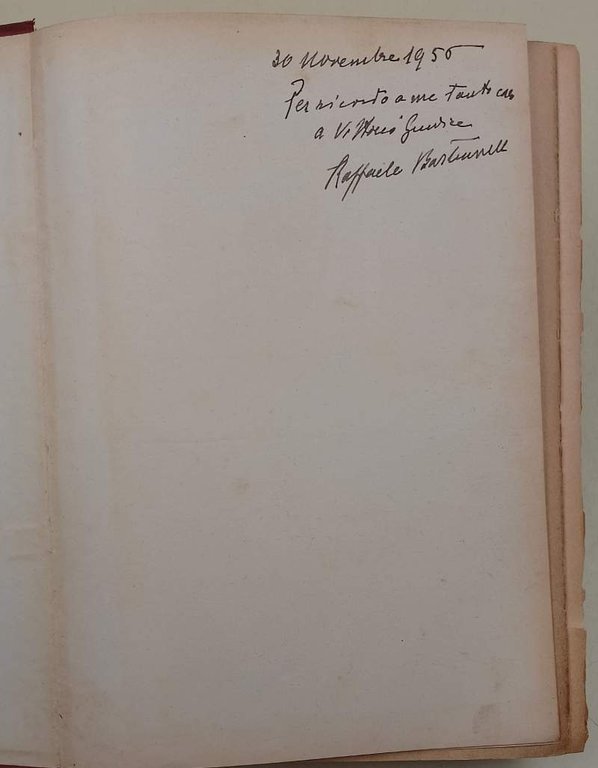 30 Novembre 1956
Per ricordo a me tanto caro
a Vittorio Guidice
Raffaele Bastianelli